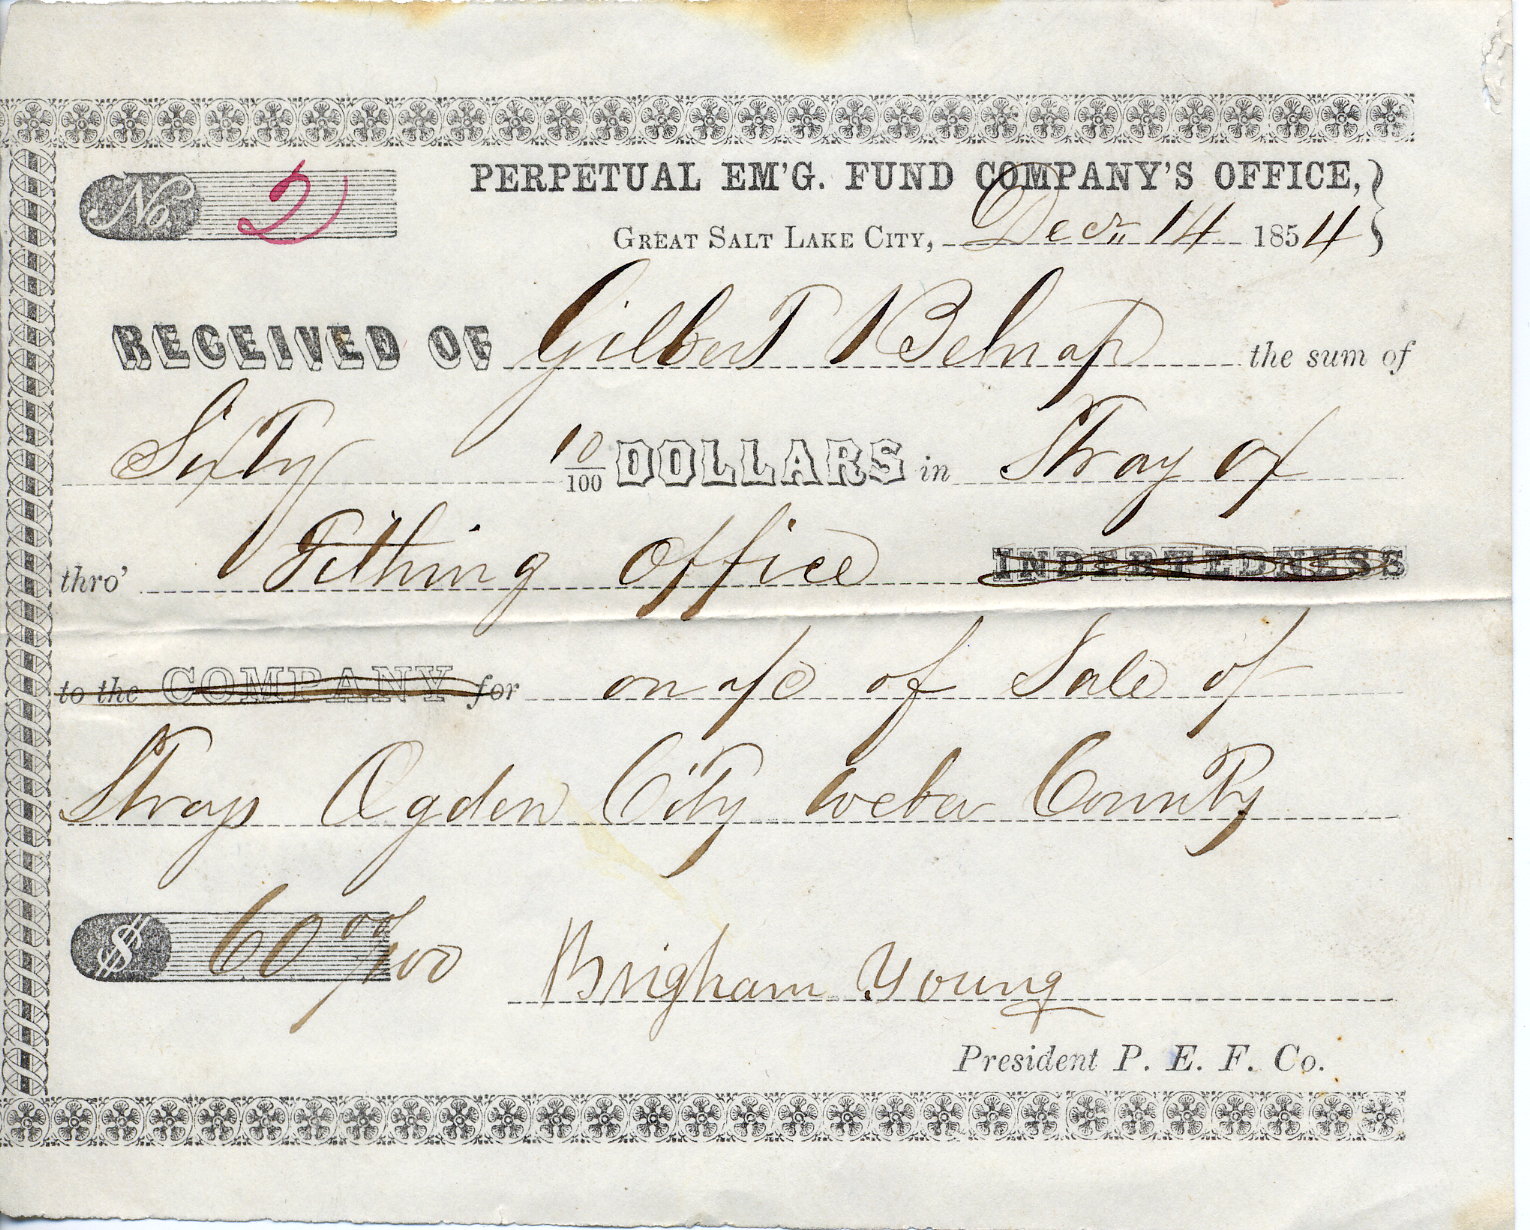 No. 2 PERPETUAL EM'G. FUND COMPANY'S OFFICE,
GREAT SALT LAKE CITY, Decr. 14 1854
RECEIVED OF Gilbert Belnap the sum of
Sixty 10/100 DOLLARS in Stray Ox
thro' Tithing Office INDEBTEDNESS
to the COMPANY for on a/c of Sale of
Strays Ogden City Weber County
$ 60 00/100 Brigham Young
President P. E. F. Co.